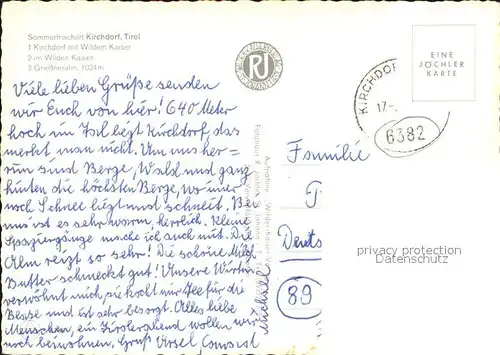 Sommerfrischort Kirchdorf, Tirol
1 Kirchdorf mit Wildem Kaiser
2 im Wilden Kaiser
3 Griesneralm, 1024m
RJ
EINE
JÖCHLER
KARTE
KIRCHDOR
17.-
6382
Viele lieben Grüße senden
wir Euch von hier! 640 Meter
hoch im Tal liegt Kirchdorf, das
merkt man nicht. Um uns her=
um sind Berge, Wald und ganz
hinten die höchsten Berge, wo immer
noch Schnee liegt und schneit. Bei
uns ist es sehr warm, herrlich. Kleine
Spaziergänge mache ich auch mit. Die
Alm reizt so sehr! Die schöne Milch
Butter schmeckt gut! Unsere Wirtin
verwöhnt mich, sie kocht mir Tee für die
und ist sehr besorgt. Alles liebe
Menschen, ein Tirolerabend wollen wir
noch beiwohnen. Gruß Ursel
Michael
Familie
T
Deuts
89
privacy protection
Datenschutz